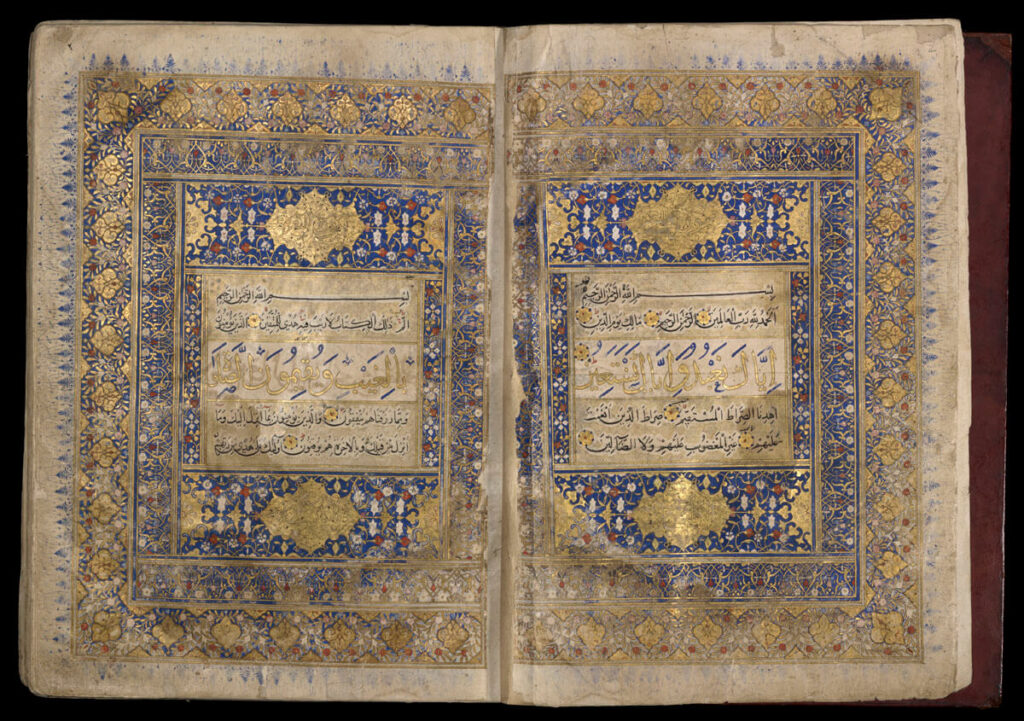 بسم الله الرحمن الرحيم
الحمد لله رب العالمين الرحمن الرحيم مالك يوم الدين
اياك نعبد واياك نستعين
اهدنا الصراط المستقيم صراط الذين انعمت
عليهم غير المغضوب عليهم ولا الضالين
بسم الله الرحمن الرحيم
الم ذلك الكتاب لا ريب فيه هدى للمتقين الذين يؤمنون
بالغيب ويقيمون الصلوة
ومما رزقناهم ينفقون والذين يؤمنون بما انزل اليك وما
انزل من قبلك وبالاخرة هم يوقنون اولئك على هدى من